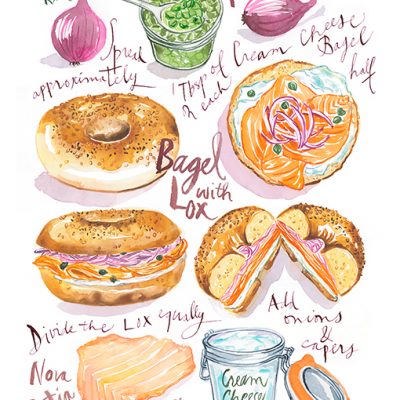 Spread
approximately
1 Tbsp of Cream Cheese
on each Bagel
half
Bagel
with
Lox
Divide the Lox equally
Add
onions
&
capers
Nova
Cream
Cheese